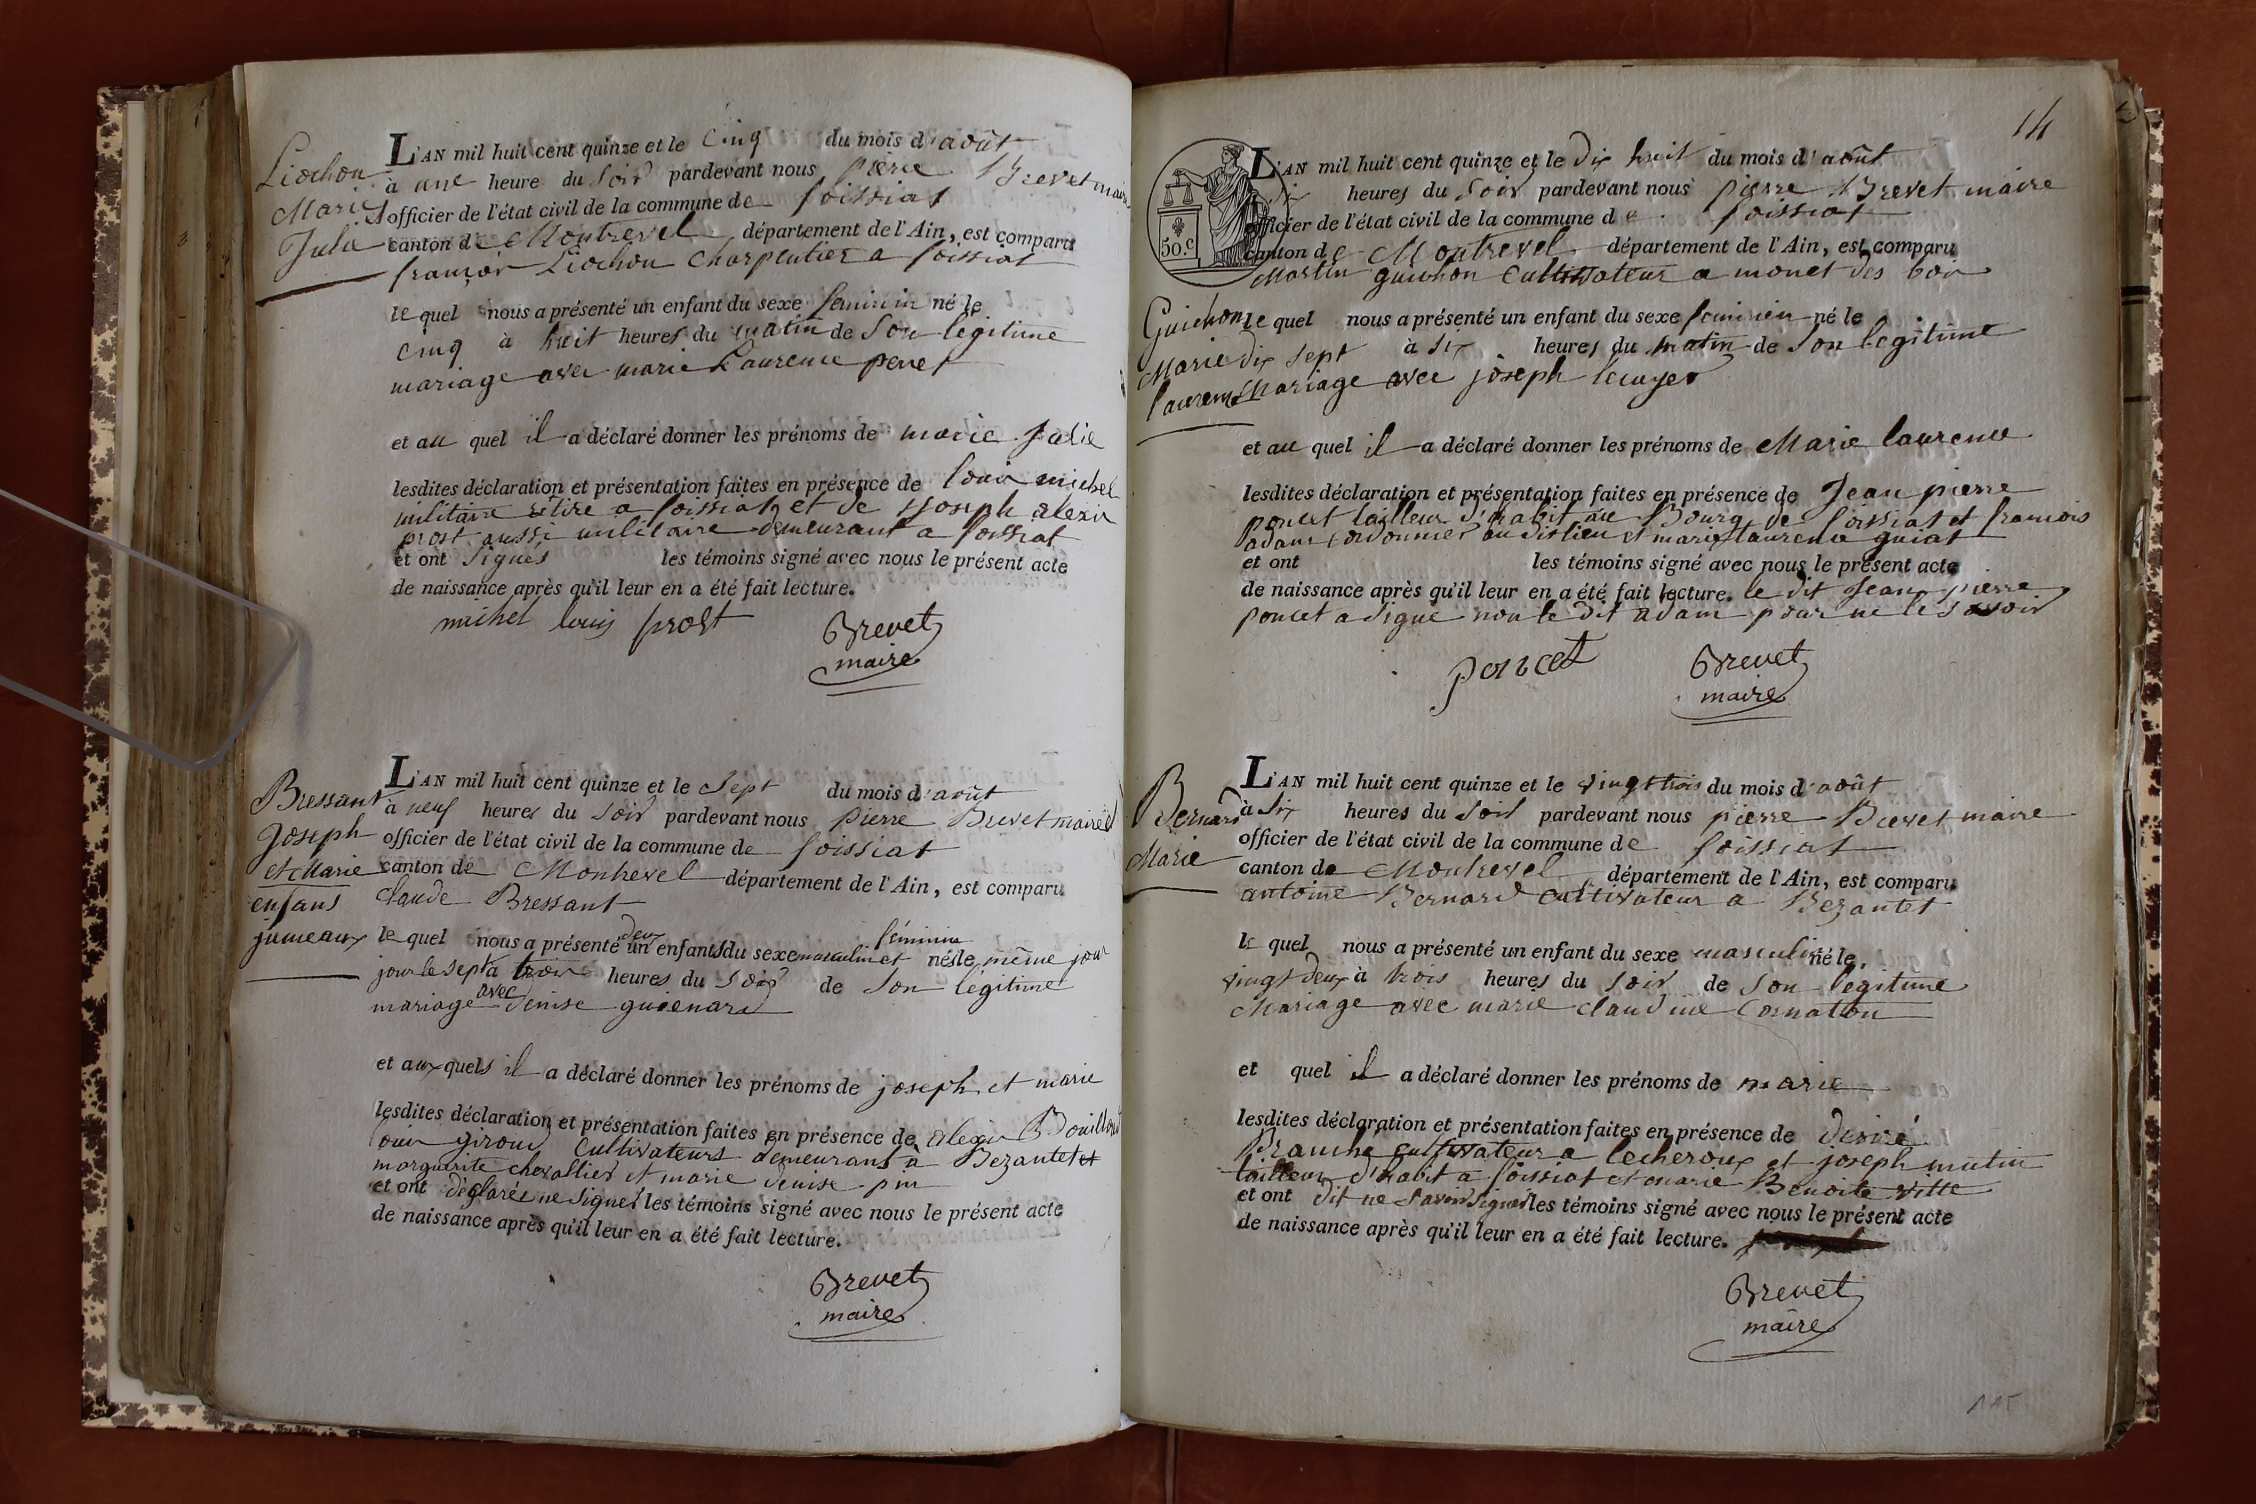 Liochon
Marie
Julie
L'AN mil huit cent quinze et le cinq du mois d'août
à une heure du soir pardevant nous pierre Brevet maire
officier de l'état civil de la commune de foissiat
canton de Montrevel département de l'Ain, est comparu
françois Liochon charpentier a foissiat
le quel nous a présenté un enfant du sexe feminin né le
cinq à huit heures du matin de son legitime
mariage avec marie Laurence perret
et au quel il a déclaré donner les prénoms de marie Julie
lesdites déclaration et présentation faites en présence de louis michel
militaire retire a foissiat et de joseph alexis
prost aussi militaire demeurant a foissiat
et ont signés les témoins signé avec nous le présent acte
de naissance après qu'il leur en a été fait lecture.
michel louis prost Brevet
maire
Bressant
Joseph
et Marie
enfans
jumeaux
L'AN mil huit cent quinze et le sept du mois d'août
à neuf heures du soir pardevant nous pierre Brevet maire
officier de l'état civil de la commune de foissiat
canton de Montrevel département de l'Ain, est comparu
claude Bressant
le quel nous a présenté un deux enfants du sexe masculin et féminin nés le même jour
jour le sept à trois heures du soir de son légitime
mariage avec denise guienard
et auxquels il a déclaré donner les prénoms de joseph et marie
lesdites déclaration et présentation faites en présence de alexis Bouilloud
louis giroud cultivateurs demeurans à Bezantet et
marguerite chevallier et marie denise pin
et ont déclarés ne signer les témoins signé avec nous le présent acte
de naissance après qu'il leur en a été fait lecture.
Brevet
maire
14
50.c
L'AN mil huit cent quinze et le dix huit du mois d'août
six heures du soir pardevant nous pierre Brevet maire
officier de l'état civil de la commune de foissiat
canton de Montrevel département de l'Ain, est comparu
Martin guichon cultivateur a monet des bois
Guichon
Marie
laurence
le quel nous a présenté un enfant du sexe feminien né le
dix sept à six heures du matin de son legitime
Mariage avec joseph lecuyer
et au quel il a déclaré donner les prénoms de Marie laurence
lesdites déclaration et présentation faites en présence de Jean pierre
poncet tailleur d'habit au Bourg de foissiat et francois
adam cordonnier audit lieu et marie laurence guiat
et ont les témoins signé avec nous le présent acte
de naissance après qu'il leur en a été fait lecture. le dit Jean pierre
poncet a signé non le dit adam pour ne le savoir
poncet Brevet
maire
Bernard
Marie
L'AN mil huit cent quinze et le vingt trois du mois d'août
à six heures du soir pardevant nous pierre Brevet maire
officier de l'état civil de la commune de foissiat
canton de Montrevel département de l'Ain, est comparu
antoine Bernard cultivateur a Bezantet
le quel nous a présenté un enfant du sexe masculin né le
vingt deux à trois heures du soir de son legitime
Mariage avec marie claudine Cornaton
et quel il a déclaré donner les prénoms de marie
lesdites déclaration et présentation faites en présence de desiré
Branche cultivateur a lecheroux et joseph mutin
tailleur d'habit a foissiat et marie Benoite vitte
et ont dit ne savoir signer les témoins signé avec nous le présent acte
de naissance après qu'il leur en a été fait lecture.
Brevet
maire